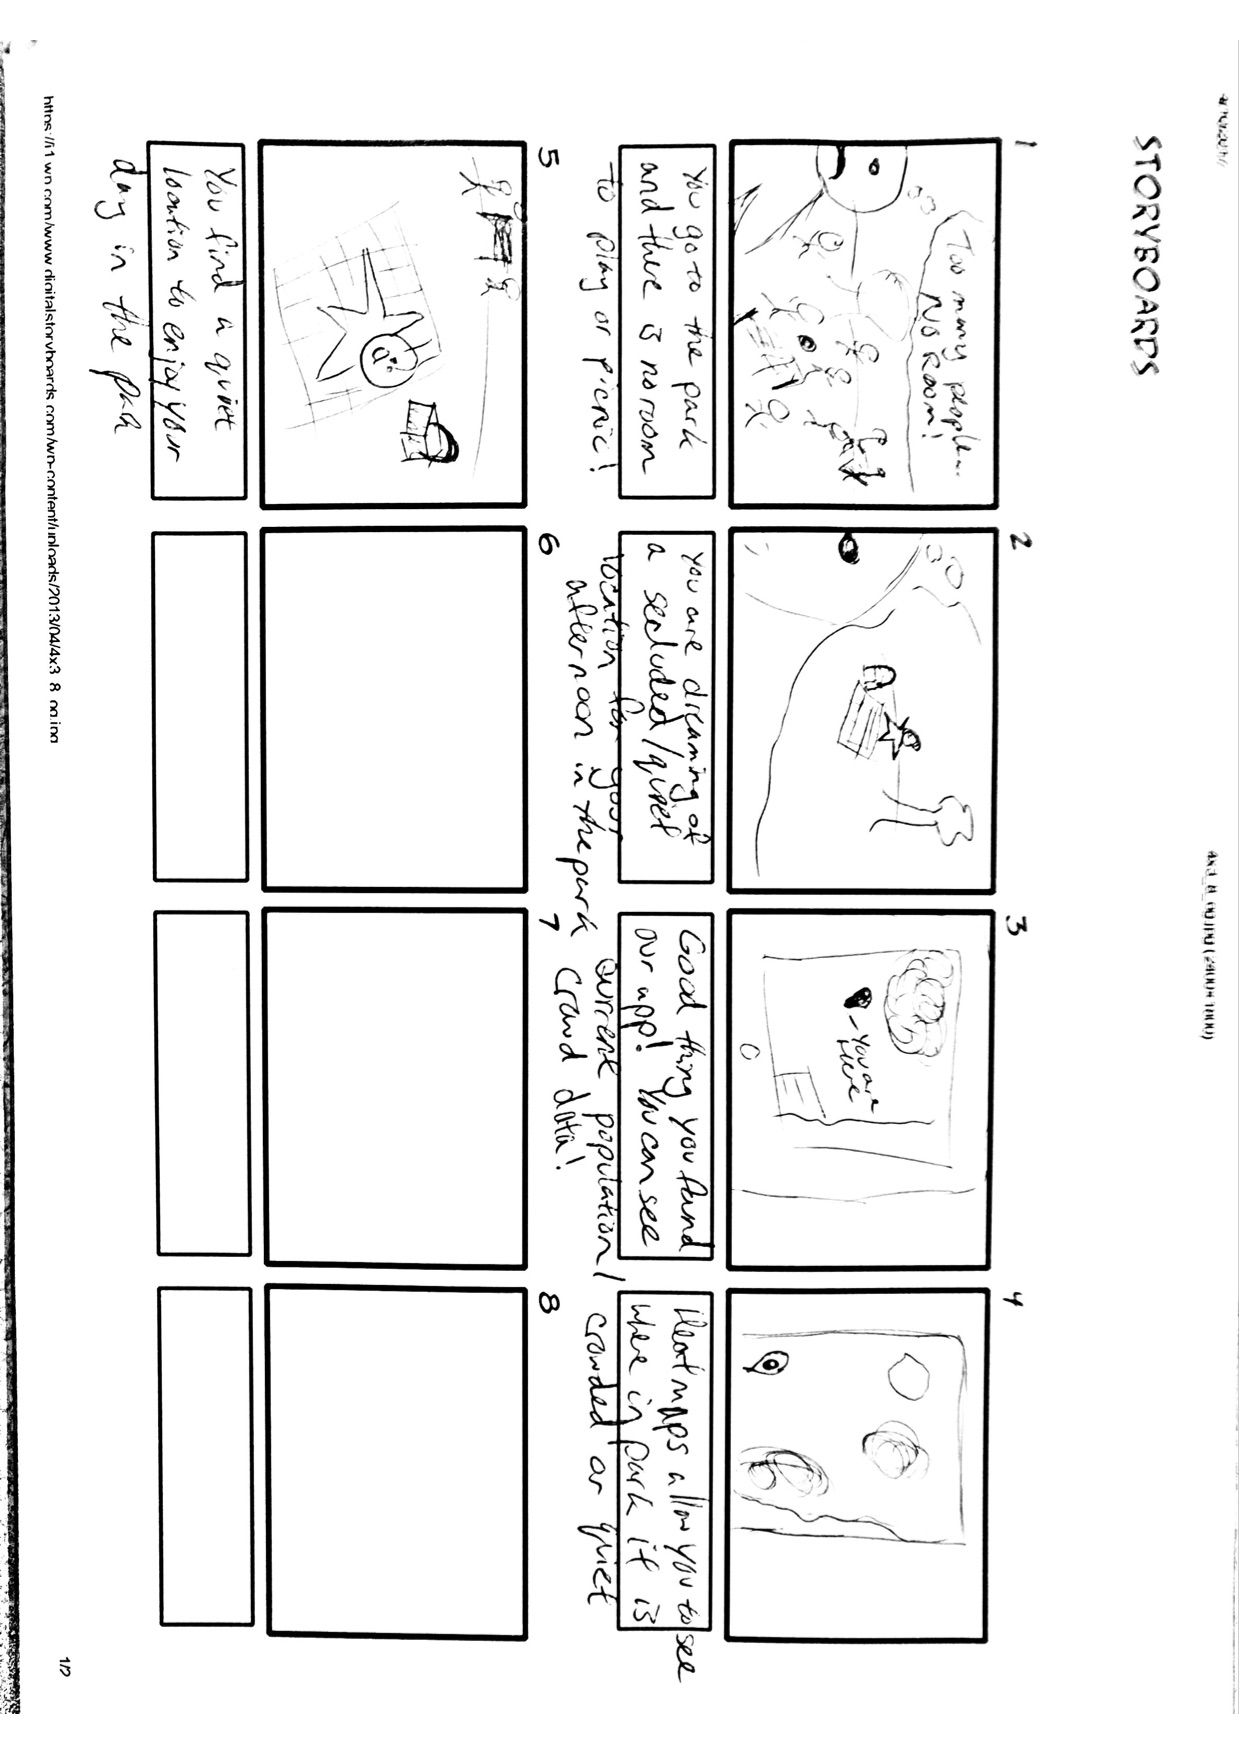 STORYBOARDS
1
Too many people...
NO ROOM!
You go to the park
and there is no room
to play or picnic!
2
You are dreaming of
a secluded/quiet
location for your
afternoon in the park
3
You are
Here
Good thing you found
our app! You can see
current population/
crowd data!
4
Heat maps allow you to see
where in park it is
crowded or quiet
5
You find a quiet
location to enjoy your
day in the park
6
7
8
https://i1.wp.com/www.digitalstoryboards.com/wp-content/uploads/2013/04/4x3_8_pg.jpg
1/2